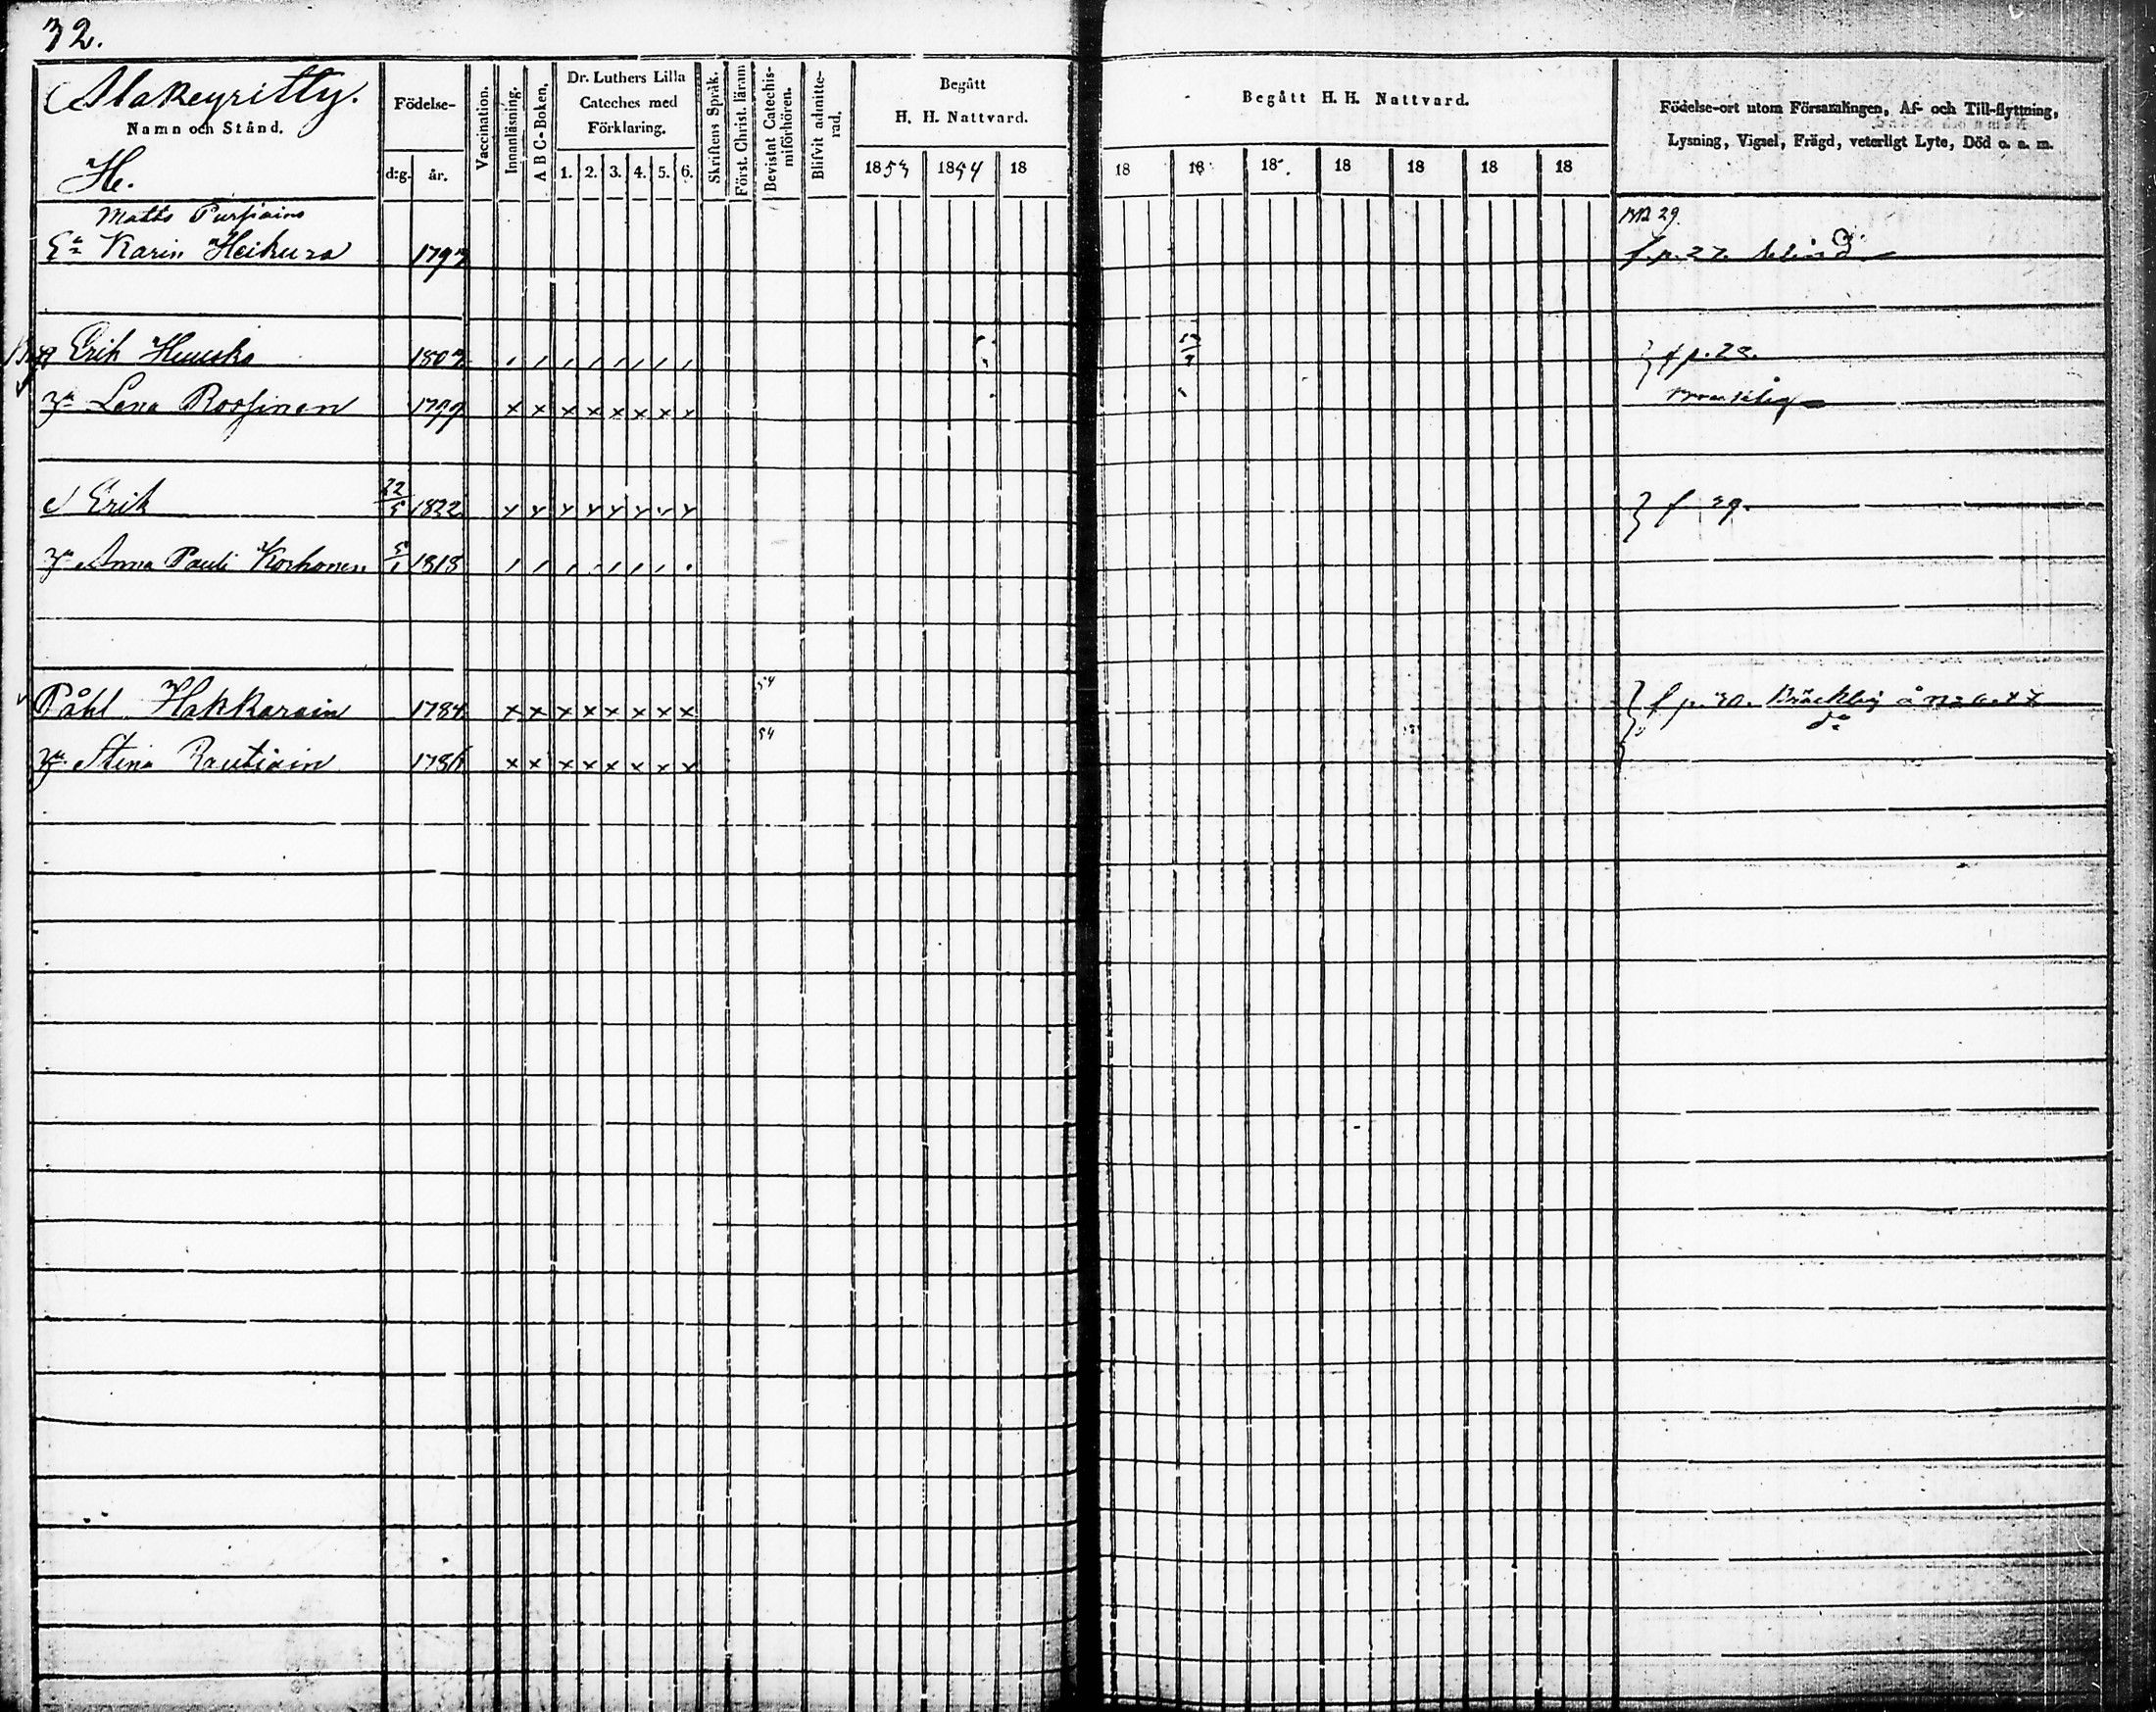 32.
Alakeyritty.
Namn och Stånd.
H.
Födelse-
d:g. år.
Vaccination.
Innanläsning.
A B C-Boken,
Dr. Luthers Lilla
Cateches med
Förklaring.
1. 2. 3. 4. 5. 6.
Skriftens Språk.
Först. Christ. läran
Bevistat Catechis-
miförhören.
Blifvit admitte-
rad.
Begått
H. H. Nattvard.
1853 1854 18
Begått H. H. Nattvard.
18 18 18 18 18 18 18
Födelse-ort utom Församlingen, Af- och Till-flyttning,
Lysning, Vigsel, Frägd, veterligt Lyte, Död o. s. m.
Matts Pursiains
Ea Karin Heikura 1797 f. p. 27. blind
Erik Huusko 1807 , , , , , , , , f p. 28.
Lena Rossinen 1799 x x x x x x x x
Erik 22/5 1822 x x x x x x x x f 29.
Anna Pauli Korhonen 5/1 1818 , , , , , , , .
Påhl Hakkarain 1784 x x x x x x x x 54 f p. 30. Bräcklig
Stina Rautiain 1786 x x x x x x x x 54 do